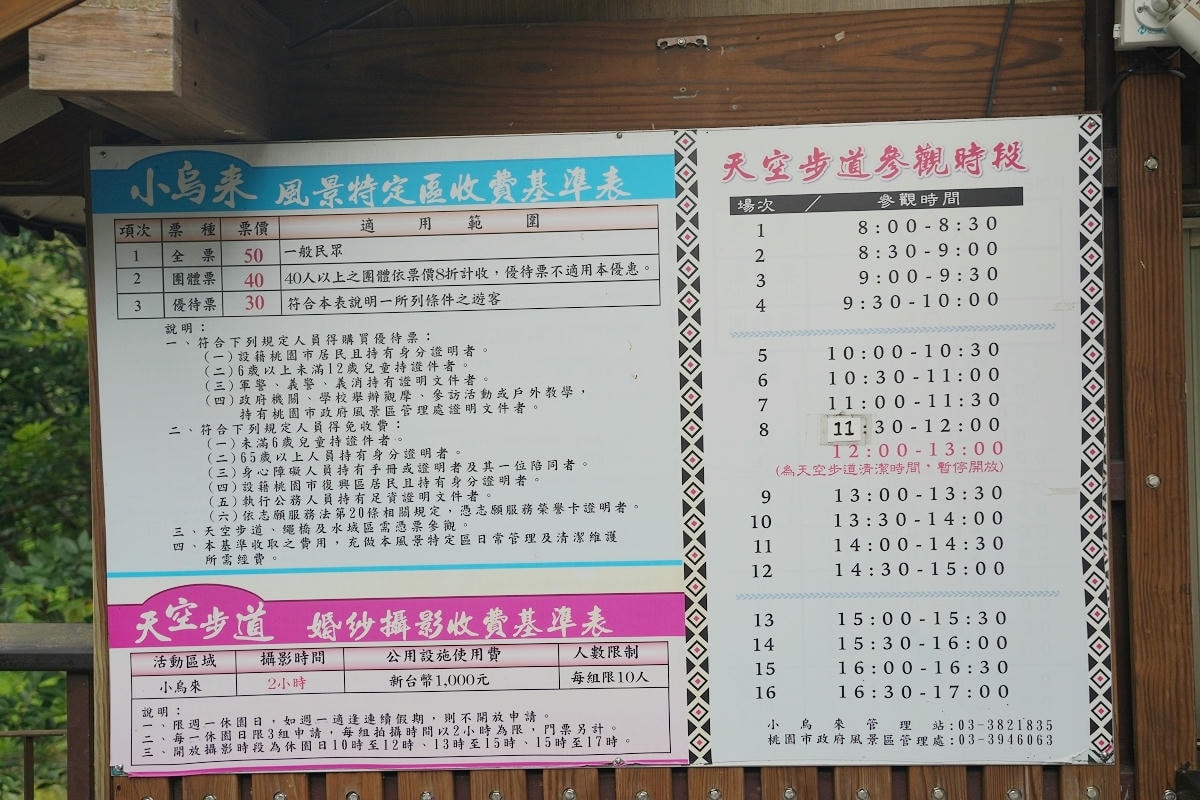 小烏來 風景特定區收費基準表
項次 票種 票價 適用範圍
1 全票 50 一般民眾
2 團體票 40 40人以上之團體依票價8折計收，優待票不適用本優惠。
3 優待票 30 符合本表說明一所列條件之遊客
說明：
一、符合下列規定人員得購買優待票：
(一)設籍桃園市居民且持有身分證明者。
(二)6歲以上未滿12歲兒童持證件者。
(三)軍警、義警、義消持有證明文件者。
(四)政府機關、學校舉辦觀摩、參訪活動或戶外教學，
持有桃園市政府風景區管理處證明文件者。
二、符合下列規定人員得免收費：
(一)未滿6歲兒童持證件者。
(二)65歲以上人員持有身分證明者。
(三)身心障礙人員持有手冊或證明者及其一位陪同者。
(四)設籍桃園市復興區居民且持有身分證明者。
(五)執行公務人員持有足資證明文件者。
(六)依志願服務法第20條相關規定，憑志願服務榮譽卡證明者。
三、天空步道、繩橋及水域區需憑票參觀。
四、本基準收取之費用，充做本風景特定區日常管理及清潔維護
所需經費。
天空步道 婚紗攝影收費基準表
活動區域 攝影時間 公用設施使用費 人數限制
小烏來 2小時 新台幣1,000元 每組限10人
說明：
一、限週一休園日，如週一適逢連續假期，則不開放申請。
二、每一休園日限3組申請，每組拍攝時間以2小時為限，門票另計。
三、開放攝影時段為休園日10時至12時、13時至15時、15時至17時。
天空步道參觀時段
場次 / 參觀時間
1 8:00-8:30
2 8:30-9:00
3 9:00-9:30
4 9:30-10:00
5 10:00-10:30
6 10:30-11:00
7 11:00-11:30
8 11:30-12:00
12:00-13:00
(為天空步道清潔時間，暫停開放)
9 13:00-13:30
10 13:30-14:00
11 14:00-14:30
12 14:30-15:00
13 15:00-15:30
14 15:30-16:00
15 16:00-16:30
16 16:30-17:00
小烏來管理站:03-3821835
桃園市政府風景區管理處:03-3946063